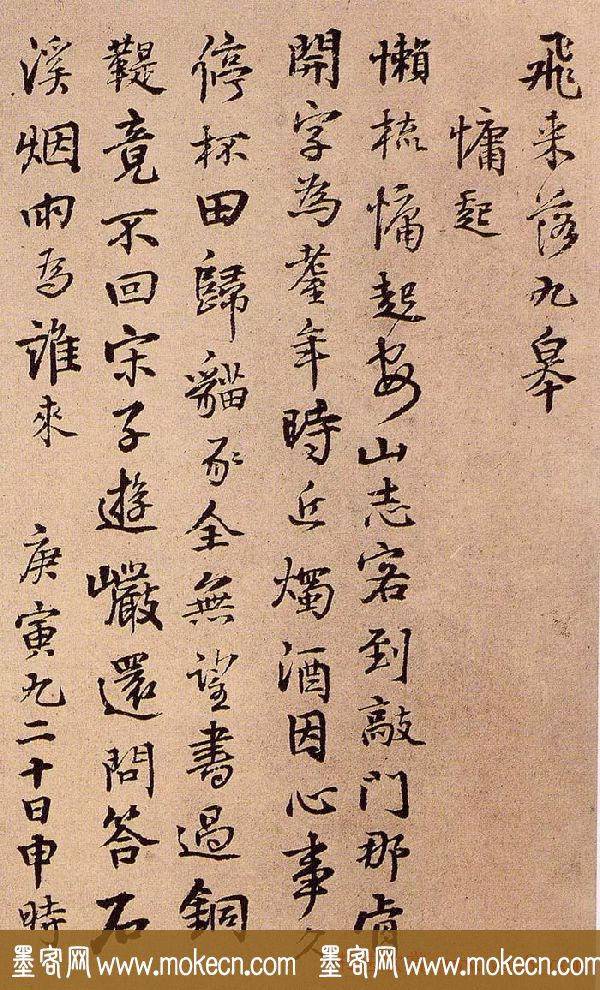 飛来落九皋
慵起
懶梳慵起山志客到敲門那肯
開字為耋年時近燭酒因心事久
停杯田歸貓豕全無望書過銅
鞮竟不回宋子遊巖還問答石
溪烟雨為誰來 庚寅九二十日申時
墨客网 www.mokecn.com 墨客网 www.mokecn.com